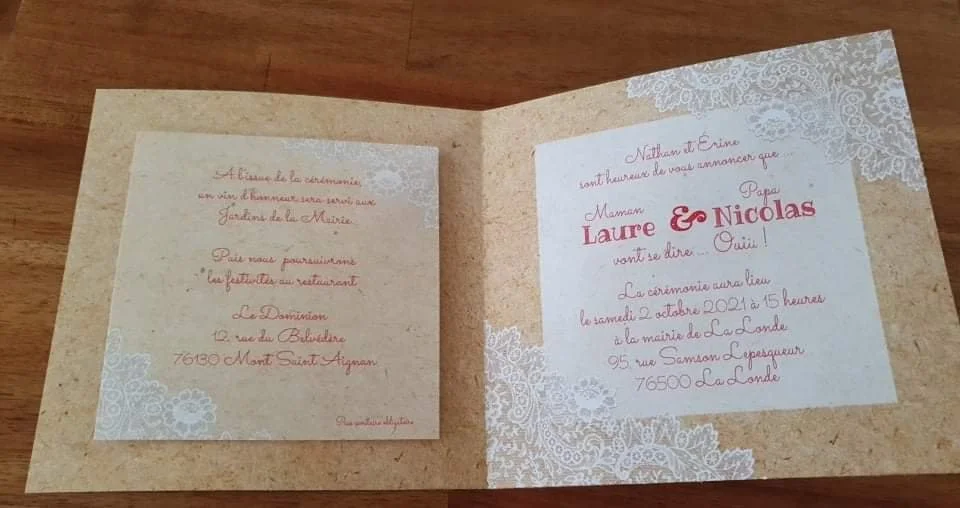 A l'issue de la cérémonie,
un vin d'honneur sera servi aux
Jardins de la Mairie.
Puis nous poursuivrons
les festivités au restaurant
Le Dominion
12, rue du Belvédère
76130 Mont Saint Aignan
Pass sanitaire obligatoire
Nathan et Érine
sont heureux de vous annoncer que ...
Maman Papa
Laure & Nicolas
vont se dire ... Ouiii !
La cérémonie aura lieu
le samedi 2 octobre 2021 à 15 heures
à la mairie de La Londe
95, rue Samson Lepesqueur
76500 La Londe